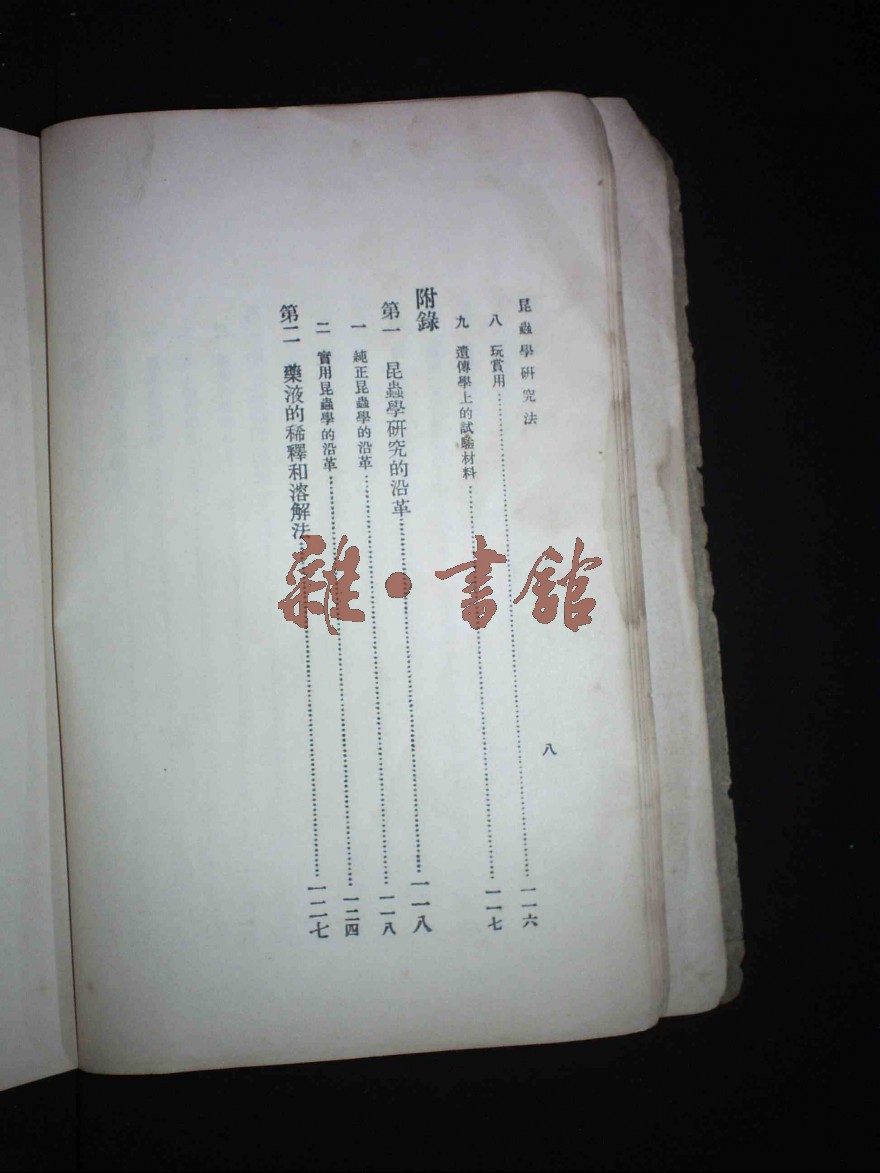 昆蟲學研究法
八
八 玩賞用……一一六
九 遺傳學上的試驗材料……一一七
附錄
第一 昆蟲學研究的沿革……一一八
一 純正昆蟲學的沿革……一一八
二 實用昆蟲學的沿革……一二四
第二 藥液的稀釋和溶解法……一二七
雜·書館